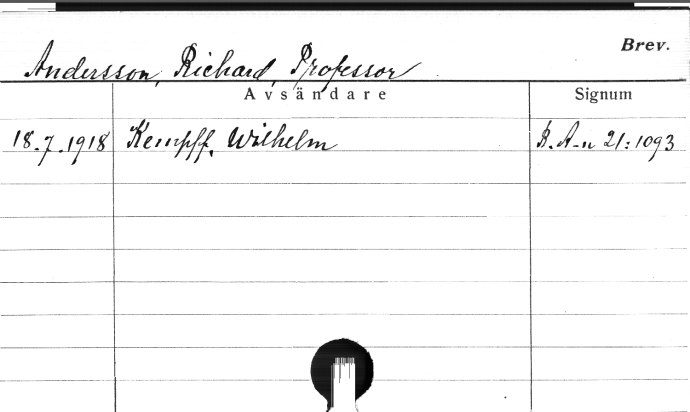 Brev.
Andersson, Richard, Professor
Avsändare Signum
18.7.1918 Kempff, Wilhelm R. A-n 21:1093